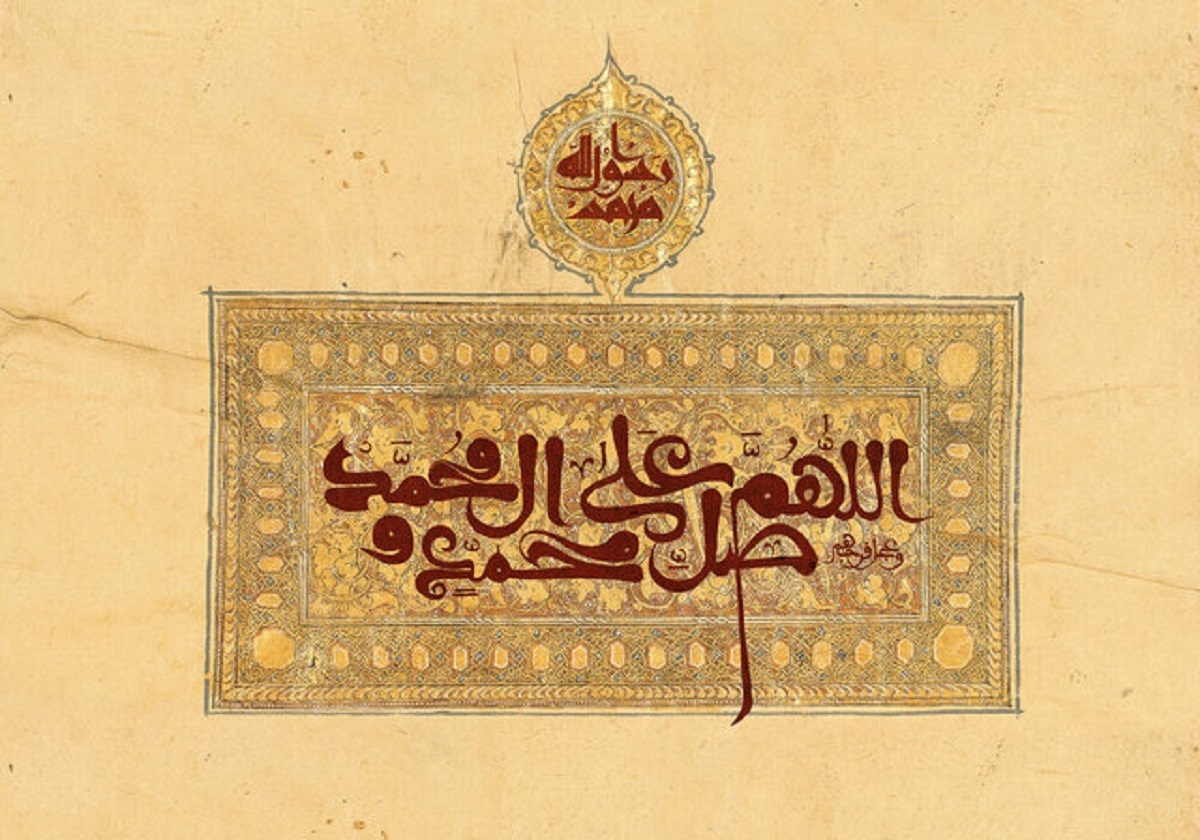 يا
رسول الله
محمد
اللّهُمَّ صلِّ على محمّدٍ و الِ مُحمَّد
و عجل فرجهم